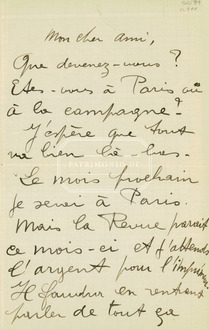 Mon cher ami,
Que devenez-vous ?
Etes-vous à Paris ou
à la campagne ?
J'espère que tout
va bien là-bas.
Le mois prochain
je serai à Paris.
Mais la Revue paraît
ce mois-ci et j'attends
l'argent pour l'imprimeur
Il faudra en rentrant
parler de tout ça